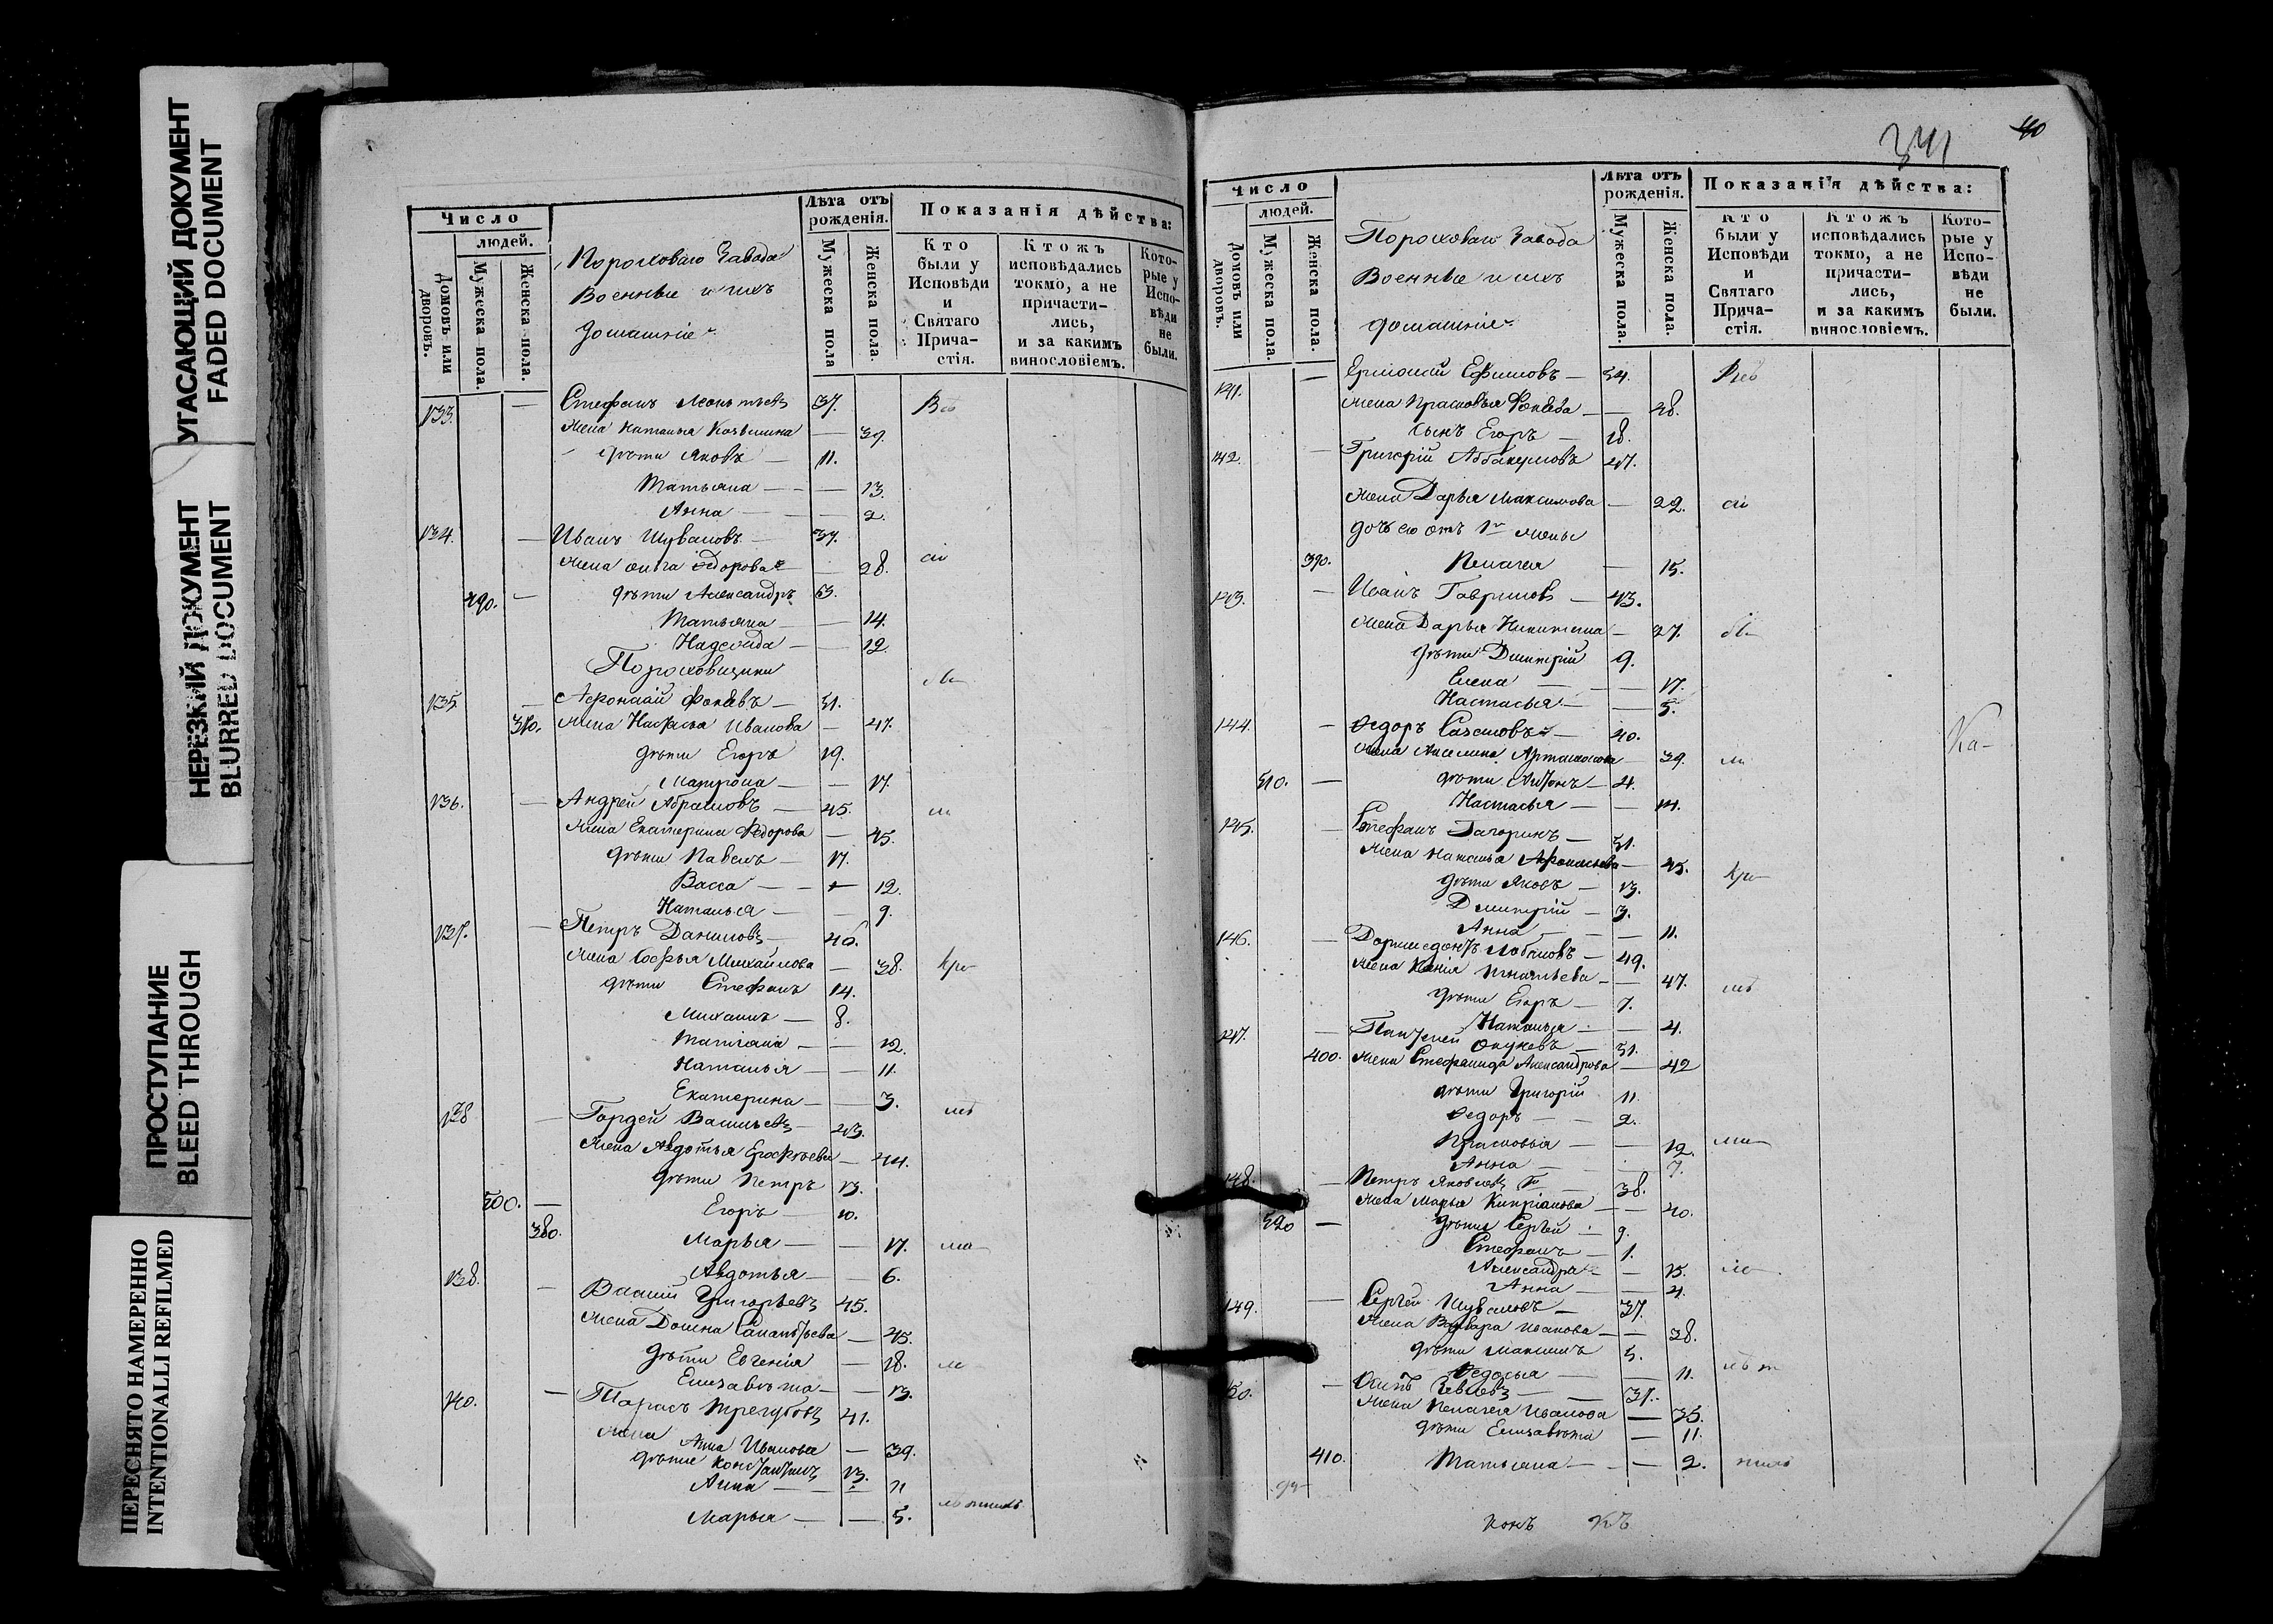 УГАСАЮЩИЙ ДОКУМЕНТ
FADED DOCUMENT
НЕРЕЗКИЙ ДОКУМЕНТ
BLURRED DOCUMENT
ПРОСТУПАНИЕ
BLEED THROUGH
ПЕРЕСНЯТО НАМЕРЕННО
INTENTIONALLI REFILMED
Число
людей.
Домовъ или дворовъ.
Мужеска пола.
Женска пола.
Пороховаго Завода
Военные и ихъ
домашніе
Лѣта отъ рожденія.
Мужеска пола
Женска пола.
Показанія дѣйства:
Кто были у Исповѣди и Святаго Причастія.
Ктожъ исповѣдались токмо, а не причастились, и за какимъ винословіемъ.
Которые у Исповѣди не были.
133. — Стефанъ Леонтьевъ 37.
Жена Наталья — 39.
дѣти Яковъ — 11.
Татьяна — — 13.
Анна — — 2.
134. — Иванъ Шуваловъ — 37.
Жена Ольга Ѳедорова — 28.
490. — дѣти Александръ
Татьяна — — 14.
Надежда — — 12.
Пороховщики
135 — Афонасій Фокѣевъ — 51.
370. Жена Настасья Иванова — 47.
дѣти Егоръ 19.
Матрона — — 17.
136. — Андрей Абрамовъ — 45.
Жена Екатерина Ѳедорова — 45.
дѣти Павелъ — 17.
Васса — — 12.
Наталья — — 9.
137. — Петръ Даниловъ — 46.
Жена Софья Михайлова — 38.
дѣти Стефанъ 14.
Михаилъ — 8.
Татіана — — 12.
Наталья — — 11.
Екатерина — — 3.
138 — Гордей Васильевъ — 43.
Жена Авдотья Ерофѣева — 44.
дѣти Петръ 13.
500. — Егоръ — 10.
380. Марья — — 17.
Авдотья — — 6.
138. — Василій Григорьевъ 45.
Жена Домна — 45.
дѣти Евгенія — 18.
Елизавѣта — — 13.
140. — Тарасъ Трегубовъ 41.
Жена Анна Иванова — 39.
дѣти Константинъ 13.
Анна — — 11
Марья — — 5.
341
40
Число
людей.
Домовъ или дворовъ.
Мужеска пола.
Женска пола.
Пороховаго Завода
Военные и ихъ
домашніе
Лѣта отъ рожденія.
Мужеска пола.
Женска пола.
Показанія дѣйства:
Кто были у Исповѣди и Святаго Причастія.
Ктожъ исповѣдались токмо, а не причастились, и за какимъ винословіемъ.
Которые у Исповѣди не были.
141. — Ермолай Ефимовъ — 54.
Жена Прасковья — 48.
сынъ Егоръ — 18.
142. — Григорій Аббакумовъ 47.
Жена Дарья Максимова — 22.
дочь его отъ 1й жены
390. Пелагея — 15.
143. — Иванъ Гавриловъ — 43.
Жена Дарья Никитина — 27.
дѣти Димитрій 9.
Елена — — 17.
Настасья — — 5.
144. — Ѳедоръ — 40.
Жена Акелина — 39.
510. — дѣти Антонъ — 4.
Настасья — — 14.
145. — Стефанъ Гагоринъ — 51.
Жена Наталья Афонасьева — 45.
дѣти Яковъ — 13.
Димитрій — 3.
Анна — — 11.
146. — Дормидонтъ Лобановъ — 49.
Жена Ксенія Игнатьева — 47.
дѣти Егоръ — 7.
Наталья — — 4.
147. — Пантелей Окуневъ — 51.
400. Жена Стефанида Александрова — 42
дѣти Григорій 11.
Ѳедоръ — 2.
Прасковья — — 12.
Анна — — 7.
148. — Петръ Яковлевъ — 38.
Жена Марья Кипріанова — 40.
520 — дѣти Сергѣй — 9.
Стефанъ — 1.
Александра — — 15.
Анна — — 4.
149. — Сергѣй Шуваловъ — 37.
Жена Варвара Иванова — 38.
дѣти Максимъ 5.
Ѳедосья — — 11.
150. — Осипъ — 37.
Жена Пелагея Иванова — 35.
дѣти Елизавѣта — 11.
410. Татьяна — — 2.